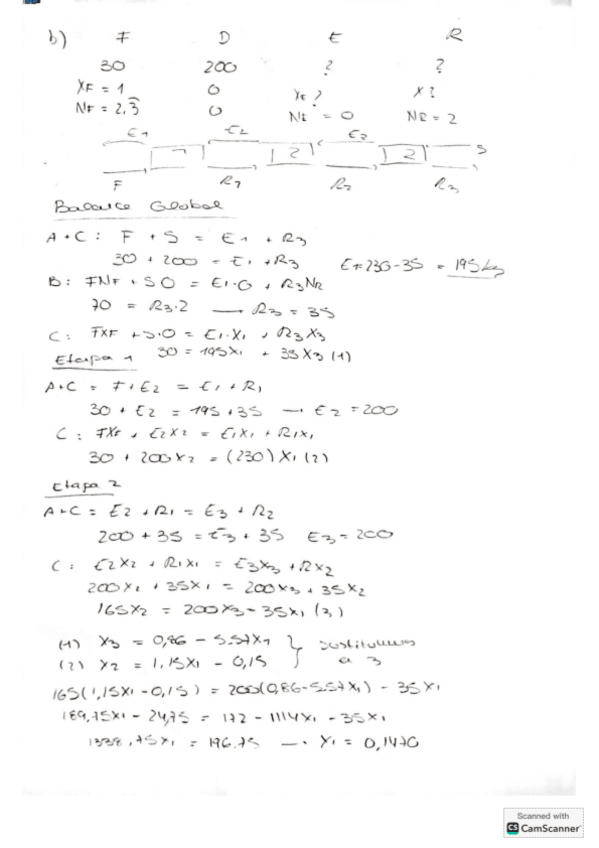 b) F D E R
30 200 ? ?
XF = 1 0 XE ? X ?
NF = 2,3 0 NE = 0 NR = 2
E1 E2 E3
1 2 2 S
F R1 R2 R3
Balance Global
A+C : F + S = E1 + R3
30 + 200 = E1 + R3 E1=230-35 = 195 kg
B: FNF + S0 = E1·0 + R3NR
70 = R3·2 → R3 = 35
C: FXF + S·0 = E1·X1 + R3X3
30 = 195X1 + 35X3 (1)
Etapa 1
A+C = F+E2 = E1 + R1
30 + E2 = 195+35 → E2 = 200
C: FXF + E2X2 = E1X1 + R1X1
30 + 200X2 = (230) X1 (2)
Etapa 2
A+C = E2 + R1 = E3 + R2
200 + 35 = E3 + 35 E3 = 200
C: E2X2 + R1X1 = E3X3 + RX2
200X2 + 35X1 = 200X3 + 35X2
165X2 = 200X3 - 35X1 (3)
(1) X3 = 0,86 - 5.57X1
(2) X2 = 1,15X1 - 0,15
sustituimos a 3
165(1,15X1 - 0,15) = 200(0,86-5.57X1) - 35X1
189,75X1 - 24,75 = 172 - 1114X1 - 35X1
1338,75X1 = 196.75 → X1 = 0,1470
Scanned with
CS CamScanner